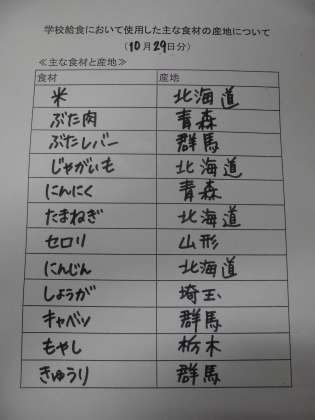 学校給食において使用した主な食材の産地について
(10月29日分)
≪主な食材と産地≫
食材 産地
米 北海道
ぶた肉 青森
ぶたレバー 群馬
じゃがいも 北海道
にんにく 青森
たまねぎ 北海道
セロリ 山形
にんじん 北海道
しょうが 埼玉
キャベツ 群馬
もやし 栃木
きゅうり 群馬